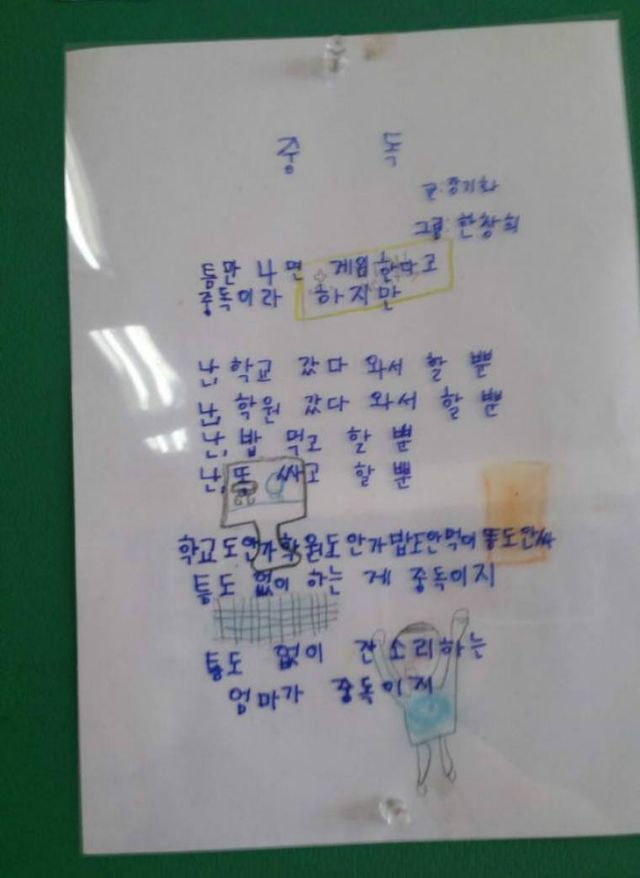 중 독
글:중기화
그림:한창희
틈만 나면 게임한다고
중독이라 하지만
난, 학교 갔다 와서 할 뿐
난, 학원 갔다 와서 할 뿐
난, 밥 먹고 할 뿐
난, 똥 싸고 할 뿐
학교도안가학원도안가밥도안먹어똥도안싸
틈도 없이 하는 게 중독이지
틈도 없이 잔소리하는
엄마가 중독이지